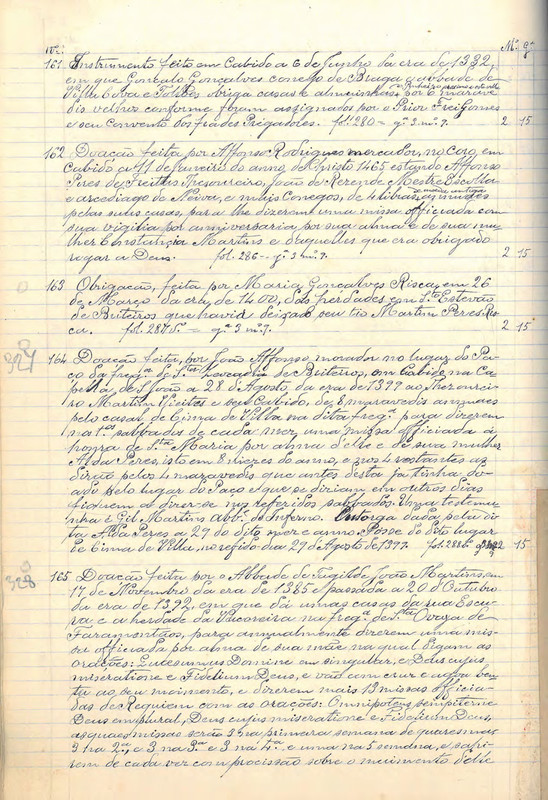 Nº:
Mº gª
161 Instrumento feito em Cabido a 6 de Junho da era de 1332,
em que Gonçalo Gonçalves conego de Braga e abbade de
Villa Cova e obriga casas e almuinhas por 6 marave
dis velhos conforme foram assignados por o Prior Frei Gomes
e seu Convento dos frades Pregadores. fol. 280 = gª 3 mº 7. 2 15
162 Doação feita por Affonso Rodrigues mercador, no Coro, em
Cabido a 11 de Janeiro do anno de Christo 1465 estando Affonso
Pires de Freitas Thesoureiro, João de Rezende Mestre Escolla
e arcediago de Neiva, e mais Conegos, de 4 libras
de moeda antiga
pelas suas casas, para lhe dizerem uma missa officiada com
sua vigilia por anniversario por sua alma e de sua mu-
lher Constança Martins e daquelles que era obrigado
rogar a Deus. fol. 286 = gª 3 mº 7. 2 15
163 Obrigação, feita por Maria Gonçalves Risca, em 26
de Março da era de 1400, das herdades em Stº Estevão
de Briteiros que havia deixado seu tio Martim Peres Ros-
cu. fol. 287 = gª 3 mº 7. 2 15
327
164 Doação feita, por João Affonso, morador no lugar do Pa-
ço da fregª de Stª Leocadia de Briteiros, em Cabido na Ca-
pella de S. João a 28 de Agosto da era de 1399 ao Thezourei-
ro Martim e seu Cabido, de 8 maravedis annuaes
pelo casal de Cima de Villa na dita fregª para dizerem
na 1ºs sabbados de cada mez, uma missa officiada á
honra de Stª Maria por alma d'elle e de sua mulher
Alda Peres, isto em 8 mezes do anno, e nos 4 restantes as
dirão pelos 4 maravedis que antes desta já tinha do-
ado pelo lugar do Paço e que se diriam em outros dias
fiquem a dizer-se nos referidos sabbados. Uma testemu-
nha é Gil Martins abbº do Inferno. Outorga dada pela di-
ta Alda Peres a 29 do dito mez e anno. Posse do dito lugar
de Cima de Villa, no refido dia 29 Agosto de 1399. fol. 288 2 15
328
165 Doação feita por o Abbade de Tagilde João Martins, em
17 de Novembro da era de 1385 e passada a 20 de Outubro
da era de 1392, em que dá umas casas da sua Escu-
ra e a herdade da Visconeira na fregª de Stª Ovaya de
Faramontãos, para annualmente dizerem uma mis-
sa officiada por alma de sua mãe na qual digam as
orações: Quaesumus Domine em singular, e Deus cujus
miseratione e Fidelium Deus, e vão com cruz e agua ben-
ta ao seu moimento, e dizerem mais 13 missas officia-
das de Requiem com as orações: Omnipotens sempiterne
Deus em plural, Deus cujus miseratione e Fidelium Deus,
as quaes missas serão 3 na primeira semana de quaresma,
3 na 2ª, e 3 na 3ª e 3 na 4ª e uma na 5 semana, e sahi-
rem de cada vez com procissão sobre o muimento d'elle